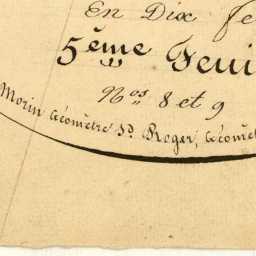 En Dix fe
5ème Feui
Nos 8 et 9
Morin Géomètre Sd. Roger, Géomèt